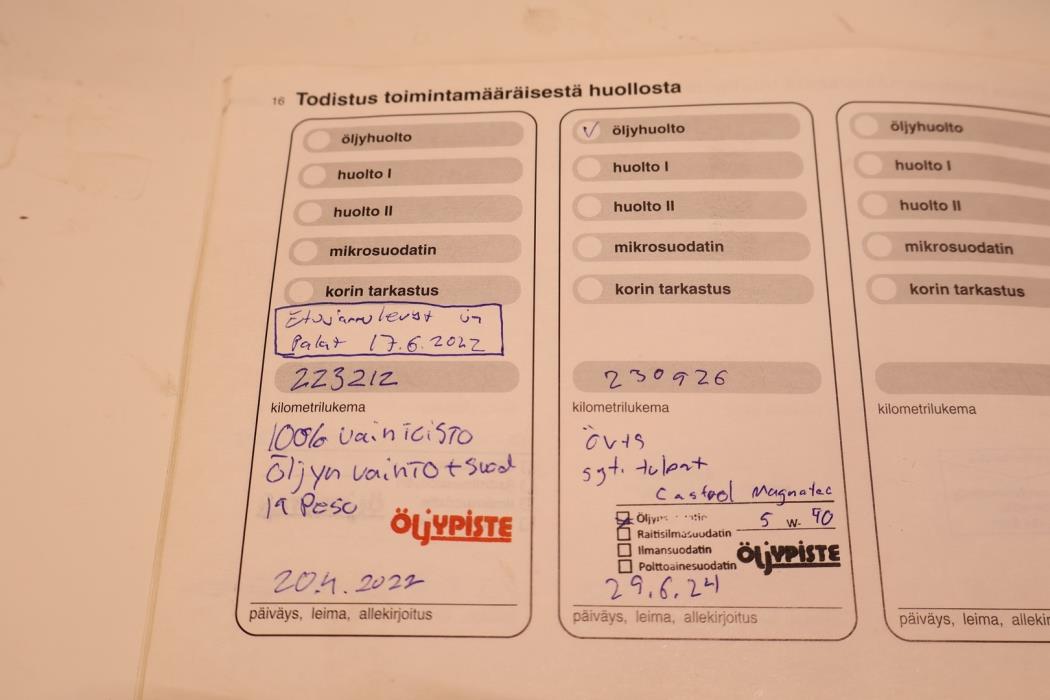 16 Todistus toimintamääräisestä huollosta
öljyhuolto
huolto I
huolto II
mikrosuodatin
korin tarkastus
Palat 17.6.2022
223212
kilometrilukema
100%
Öljyn vaihto + suod
ja Pesu
ÖLJYPISTE
20.4.2022
päiväys, leima, allekirjoitus
öljyhuolto
huolto I
huolto II
mikrosuodatin
korin tarkastus
230926
kilometrilukema
öv+s
syt. tulpat
Castrol Magnatec
5 W- 40
Raitisilmasuodatin
Ilmansuodatin
Polttoainesuodatin
ÖLJYPISTE
29.6.24
päiväys, leima, allekirjoitus
öljyhuolto
huolto I
huolto II
mikrosuodatin
korin tarkastus
kilometrilukema
päiväys, leima, allekir